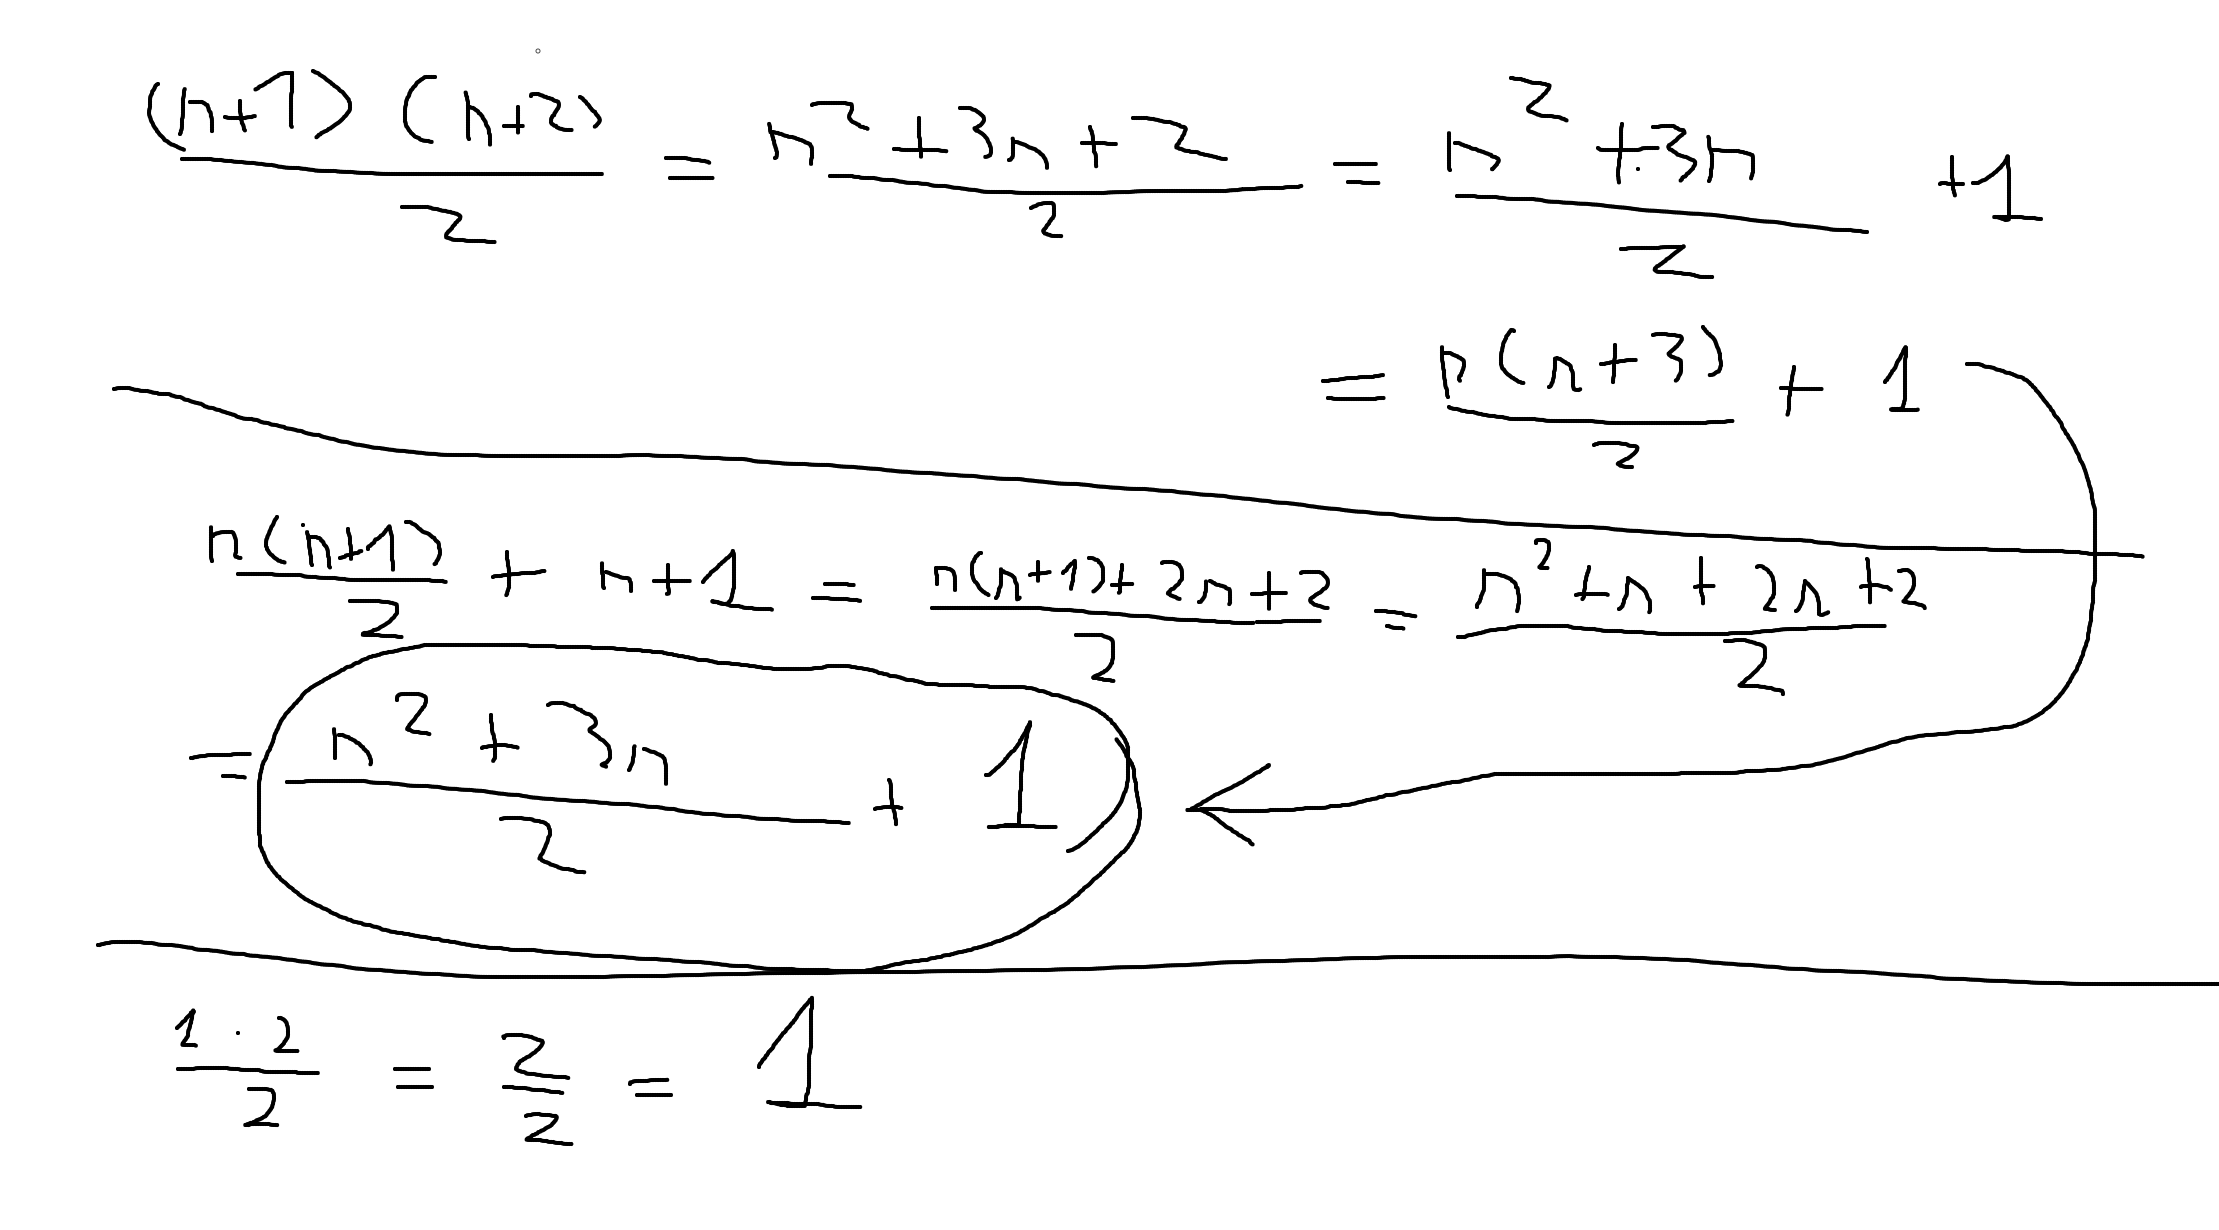 (n+1) (n+2) / 2 = n² + 3n + 2 / 2 = n² + 3n / 2 + 1
= n(n+3) / 2 + 1
n(n+1) / 2 + n+1 = n(n+1)+2n+2 / 2 = n² + n + 2n + 2 / 2
= n² + 3n / 2 + 1
1 · 2 / 2 = 2 / 2 = 1